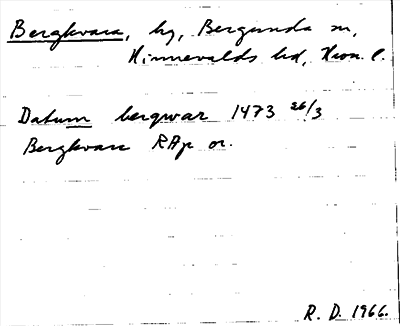 Bergkvara, hg, Bergunda sn,
Kinnevalds hd, Kron. l.
Datum bergwar 1473 26/3
Bergkvara RAp or.
R. D. 1966.